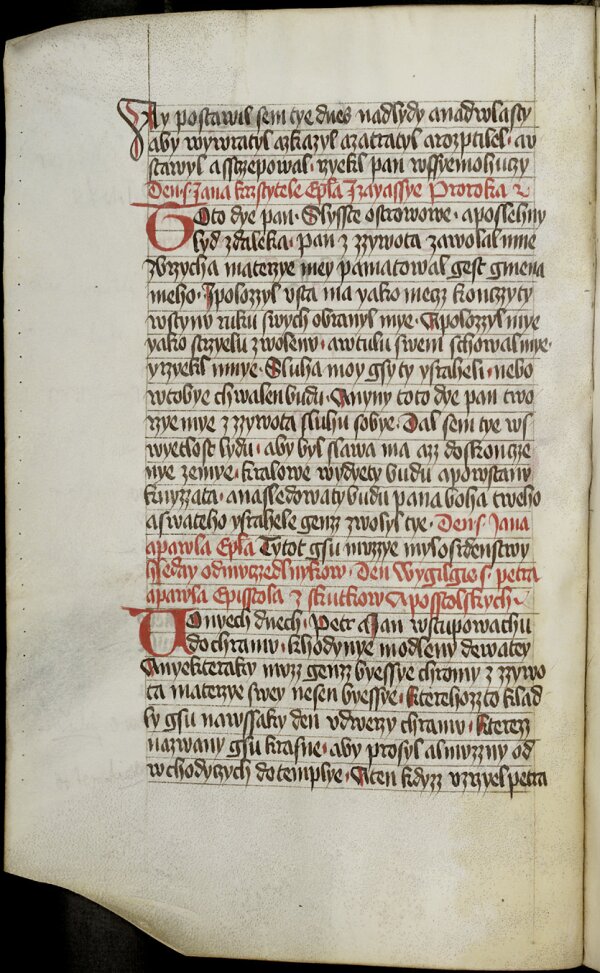 Ay postawil sem tye dnes nadlydy anadwlasty
aby wywratyl azkazyl azatratyl arozptilel · av
stawyl asstzepowal · rzyekl pan wssyemohuczy
Den s · Jana krzstytele Epla Jzayassye Proroka
Toto dye pan · Slysste ostrowowe · aposlehny
lyd zdaleka · pan z zzywota zawolal mne
zbrzycha materzye mey pamatowal gest gmena
meho · Ipolozzyl vsta ma yako mecz konczyty
wstynv ruku swych obranyl mye · Apolozzyl mye
yako strzyelu zwolenv · awtulu swem schowal mye
yrzyekl mnye · Sluha moy gsy ty ysraheli · nebo
wtobye chwalen budu · Anyny toto dye pan two
rzye mye z zzywota sluhu sobye · Dal sem tye ws
wyetlost lydu · aby byl slawa ma azz doskoncze
nye zemye · kralowe wydyety budu apowstanv
knyzzata · anasledowaty budu pana boha tweho
aswateho ysrahele genz zwolyl tye · Den s · Jana
apawla Epla Tytot gsu muzzye mylosrdenstwy
hleday odmuczedlnykow · Den Wygilgie s · petra
apawla Epistola z skutkow Aposstolskych
Vonyech dnech · Petr a Jan wstupowachu
dochramv · khodynye modleny dewatey
Anyekteraky muzz genz byessye chromy z zzywo
ta materzye swey nesen byessye · kterehozz to klad
ly gsu nawssaky den vdwerzy chramv · kterezz
nazwany gsu krasne · aby prosyl almuzzny od
wchodyczych dotemplye · Aten kdyzz vzrzyel petra